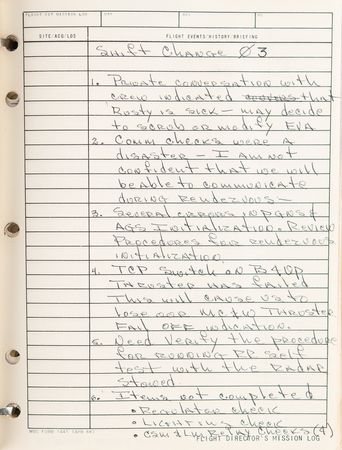 FLIGHT DIR MISSION LOG
DAY
REV
SITE/ACQ/LOS
FLIGHT EVENTS/HISTORY BRIEFING
Shift Change Ø3
1. Private conversation with
crew indicated that
Rusty is sick – may decide
to scrub or modify EVA
2. Comm checks were a
disaster – I am not
confident that we will
be able to communicate
during rendezvous –
3. Several errors in PGNS &
AGS Initialization. Review
Procedures for rendezvous
initialization.
4. TCP Switch on
Thruster has failed
This will cause us to
lose our MC&W Thruster
Fail OFF indication.
5. Need Verify the procedure
for running RR self
test with the Radar
stowed
6. Items not completed
• Regulator check
• Lighting check
• CSM & LM Relay Checks (4)
MSC FORM 1441 (APR 68)
FLIGHT DIRECTOR'S MISSION LOG